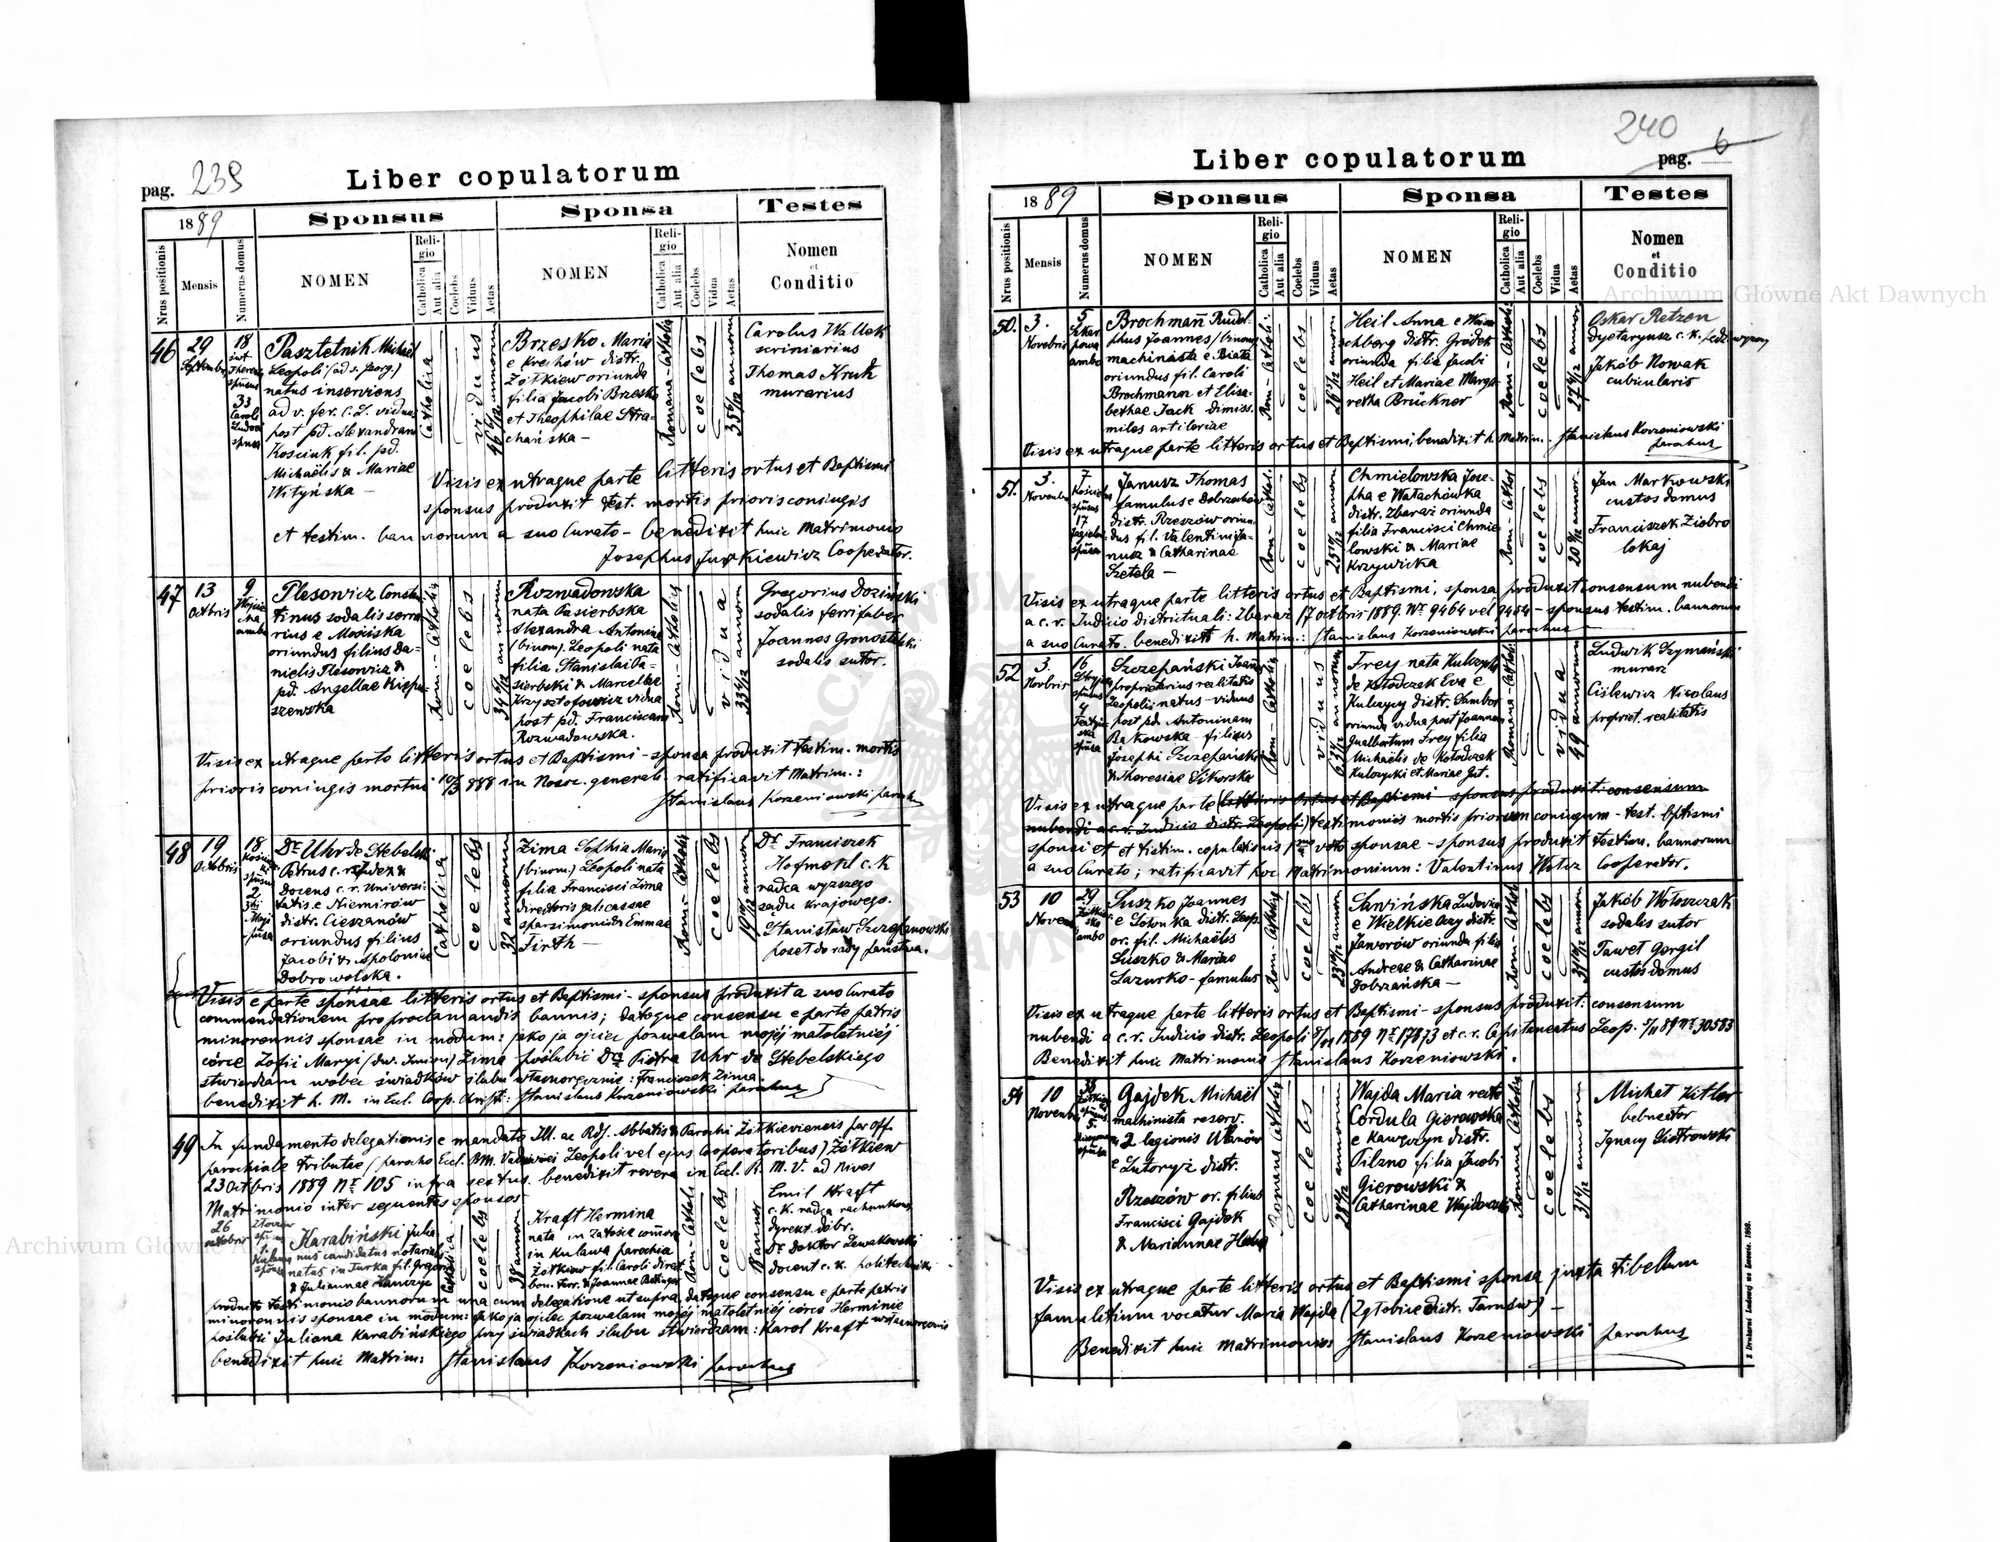 pag. 239
Liber copulatorum
1889
Sponsus
Sponsa
Testes
Nrus positionis
Mensis
Numerus domus
NOMEN
Religio
Catholica
Aut alia
Coelebs
Viduus
Aetas
NOMEN
Religio
Catholica
Aut alia
Coelebs
Vidua
Aetas
Nomen
et
Conditio
46
29
Septembr
18
33
Pasztetnik Michaël
Leopoli (ad s. Georg.)
natus inserviens
ad v. fer. C. L. viduus
post pd Alexandram
Kosciuk fil. pd.
Michaëlis & Mariae
Wityńska —
Catholica
viduus
46 6/12 annorum
Brzesko Maria
e Krehów distr.
Żółkiew oriunda
filia Jacobi Brzesko
et Theophilae Stra-
chańska —
Romana-Catholic
coelebs
35 6/12 annorum
Carolus Wallek
scriniarius
Thomas Kruk
murarius
Visis ex utraque parte litteris ortus et Baptismi
sponsus produxit test. mortis prioris coniugis
et testim. bannorum a suo Curato - benedixit huic Matrimonio
Josephus Jurkiewicz Cooperator.
47
13
Octbris
9
ambo
Plesowicz Constan
tinus sodalis serra
rius e Mościska
oriundus filius Da-
nielis Plesowicz &
pd. Angellae Krzypu-
szewska
Rom-Catholic
coelebs
34 6/12 annorum
Rozwadowska
nata Pasierbska
Alexandra Antonina
(binom.) Leopoli nata
filia Stanislai Pa-
sierbski & Marcellae
Krzysztofowicz vidua
post pd. Franciscum
Rozwadowska.
Rom-Catholic
vidua
33 4/12 annorum
Gregorius Doziński
sodalis ferrifaber
Joannes Gronostalski
sodalis sutor.
Visis ex utraque parte litteris ortus et Baptismi - sponsa produxit testim. mortis
prioris coniugis mortui 888 in Nosoc. generali ratificavit Matrim.:
Stanislaus Korzeniowski paroch
48
19
Octobris
18
sponsus
2
sponsa
Dr Uhr de Stebelski
Petrus c. r. &
Docens c. r. Universi-
tatis e Niemirów
distr. Cieszanów
oriundus filius
Jacobi & Apoloniae
Dobrowolska.
Catholica
coelebs
32 annorum
Zima Sophia Maria
(binom.) Leopoli nata
filia Francisci Zima
directoris gal. cassae
sparsimoniae & Emmae
Firth —
Rom-Catholic
coelebs
annorum
Dr Franciszek
Hofmokl c. k.
radca wyzszego
sadu krajowego.
Stanisław Szczepanowski
poseł do rady państwa.
Visis e parte sponsae litteris ortus et Baptismi - sponsus produxit a suo Curato
commendationem pro proclamandis bannis; datoque consensu e parte patris
minorennis sponsae in modum: jako ja ojciec pozwalam mojéj małoletniéj
córce Zofii Maryi (dw. Imion) Zima poślubić Dra Piotra Uhr de Stebelskiego
stwierdzam wobec świadków ślubu własnoręcznie: Franciszek Zima.
benedixit h. M. in Eccl. Corp. Christi: Stanislaus Korzeniowski parochus
49
In fundamento delegationis e mandato Ill. ac Rdss. Abbatis & Parochi Żółkieviensis per off.
parochiale tributae (parocho Eccl. Leopoli vel ejus Cooperatoribus) Żółkiew
23 Octbris 1889 Nr 105 infra sextus benedixit revera in Eccl. B. M. V. ad Nives
Matrimonio inter sequentes sponsos
26
octobris
Karabiński Julia
nus candidatus notarialis
natus in Turka fil. Gregorii
& Julianae Hanczyc
Catholica
coelebs
38 annor
Kraft Hermina
nata in Zatosie com̄or.
in Kulawa parochia
Żółkiew fil. Caroli direct.
bon. Ferr. & Joannae Bettinger
Rom-Cathol
coelebs
18 annor
Emil Kraft
c. k. radca rachunkowy
dyrekt. dóbr.
Dr. Doktor Lewakowski
docent c. k. politechniki
producto testimonio bannorum una cum delegatione ut supra, datoque consensu e parte patris
minorennis sponsae in modum: jako ja ojciec pozwalam mojéj małoletniéj córce Herminie
poślubić Juliana Karabińskiego przy świadkach ślubu stwierdzam: Karol Kraft własnoręcznie
benedixit huic Matrim: Stanislaus Korzeniowski parochus
240
Liber copulatorum
pag. 6
1889
Sponsus
Sponsa
Testes
Nrus positionis
Mensis
Numerus domus
NOMEN
Religio
Catholica
Aut alia
Coelebs
Viduus
Aetas
NOMEN
Religio
Catholica
Aut alia
Coelebs
Vidua
Aetas
Nomen
et
Conditio
50.
3.
Novebris
5
ambo
Brochmañ Rudol-
phus Joannes (binom)
machinista e Biała
oriundus fil. Caroli
Brochmann et Elisa-
bethae Jack dimiss.
miles artileriae
Rom-Catholi:
coelebs
26 5/12 annorum
Heil Anna e Wein
schberg distr. Gródek
oriunda filia Jacobi
Heil et Mariae Marga
retha Brückner
Rom-Catholi:
coelebs
annor
Oskar Retzen
Dyetaryusz c. k.
Jakób Nowak
cubicularis
Visis ex utraque parte litteris ortus et Baptismi, benedixit h. Matrim. - Stanislaus Korzeniowski
parochus
51.
3.
Novembr
7
sponsus
17
sponsa
Janusz Thomas
famulus e Dobrzechów
distr. Rzeszów oriun-
dus fil. Valentini Ja-
nusz & Catharinae
Szetela —
Rom-Cathol.
coelebs
25 10/12 annorum
Chmielowska Jose-
pha e Wałachówka
distr. Zbaraż oriunda
filia Francisci Chmie-
lowski & Mariae
Krzywicka
Rom-Cathol
coelebs
annor.
Jan Markowski
custos domus
Franciszek Ziobro
lokaj
Visis ex utraque parte litteris ortus et Baptismi, sponsa produxit consensum nubendi
a c. r. Judicio districtuali: Zbaraż 17 octbris 1889 Nr 9464 vel 9454 - sponsus testim. bannorum
a suo Curato. benedixit h. Matrim.: Stanislaus Korzeniowski parochus
52
3.
Novbris
16
Stryjska
sponsus
4
sponsa
Szczepański Joannes
proprietarius realitatis
Leopolis natus - viduus
post pd. Antoninam
Bąkowska - filius
Josephi Szczepański
& Theresiae Sikorska
Rom-Catholic
viduus
annorum
Frey nata Kulczycki
de Kołodczek Eva e
Kulczyc distr. Sambor
oriunda vidua post Joannem
Gualbertum Frey filia
Michaëlis de Kołodczek
Kulczycki et Mariae Gut.
Romana-Catholic
vidua
49 annorum
Ludwik Szymański
murarz
Cislewicz Nicolaus
propriet. realitatis
Visis ex utraque parte (litteris ortus et Baptismi sponsus produxit consensum
nubendi a c. r. Judicio distr. Leopoli) testimoniis mortis priorum coniugum - test. bptismi
sponsi et testim. copulationis 1mo voto sponsae - sponsus produxit testim. bannorum
a suo Curato; ratificavit hoc Matrimonium: Valentinus Cooperator.
53
10
Novem
29
ambo
Suszko Joannes
e Sotowka distr. Leop.
or. fil. Michaëlis
Suszko & Maria
Lazurko - famulus
Rom-Catholic
coelebs
annorum
Sawińska Ludovica
e Wielkie Oczy distr.
Jaworów oriunda filia
Andreae & Catharinae
Dobrzańska —
Rom-Cathol
coelebs
annor
Jakób Wołoszczak
sodalis sutor
Paweł Gargil
custos domus
Visis ex utraque parte litteris ortus et Baptismi - sponsus produxit: consensum
nubendi a c. r. Judicio distr. Leopoli 1889 Nr 17873 et c. r. Capitaneatus Leop. 89 Nr 30583
Benedixit huic Matrimonio Stanislaus Korzeniowski.
54
10
Novembr
38
5.
sponsa
Gajdek Michaël
machinista reserv.
2 legionis Ulanów
e Lutoryż distr.
Rzeszów or. filius
Francisci Gajdek
& Mariannae
Romana Catholic
coelebs
annorum
Wajda Maria recte
Cordula Gierowska
e Kawęczyn distr.
Pilzno filia Jacobi
Gierowski &
Catharinae Wajdowski
Romana Catholic
coelebs
annorum
Michał Kitler
bebnector
Ignacy Piotrowski
Visis ex utraque parte litteris ortus et Baptismi sponsa juxta libellum
famulitium vocatur Maria Wajda (Zgłobice distr. Tarnów) —
Benedixit huic Matrimonio: Stanislaus Korzeniowski parochus
Z Drukarni Ludowej we Lwowie. 1888.
Archiwum Główne Akt Dawnych
Archiwum Główne Akt Dawnych